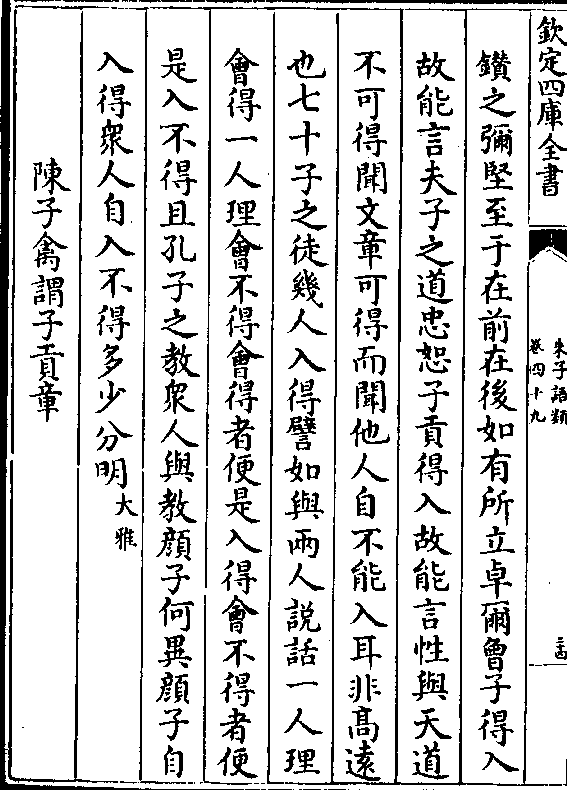 欽定四庫全書
朱子語類
卷四十九
二十四
鑽之彌堅至于在前在後如有所立卓爾曾子得入
故能言夫子之道忠恕子貢得入故能言性與天道
不可得聞文章可得而聞他人自不能入耳非髙遠
也七十子之徒幾人入得譬如與兩人説話一人理
會得一人理會不得會得者便是入得會不得者便
是入不得且孔子之教衆人與教顔子何異顔子自
入得衆人自入不得多少分明大雅
陳子禽謂子貢章